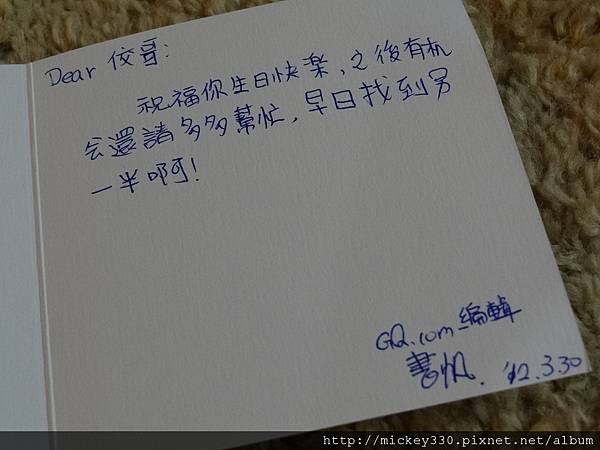 Dear 佼哥:
祝福你生日快樂,之後有机
会還請多多幫忙,早日找到另
一半啊!
GQ.com 編輯
書帆. '12.3.30
http://mickey330.pixnet.net/album